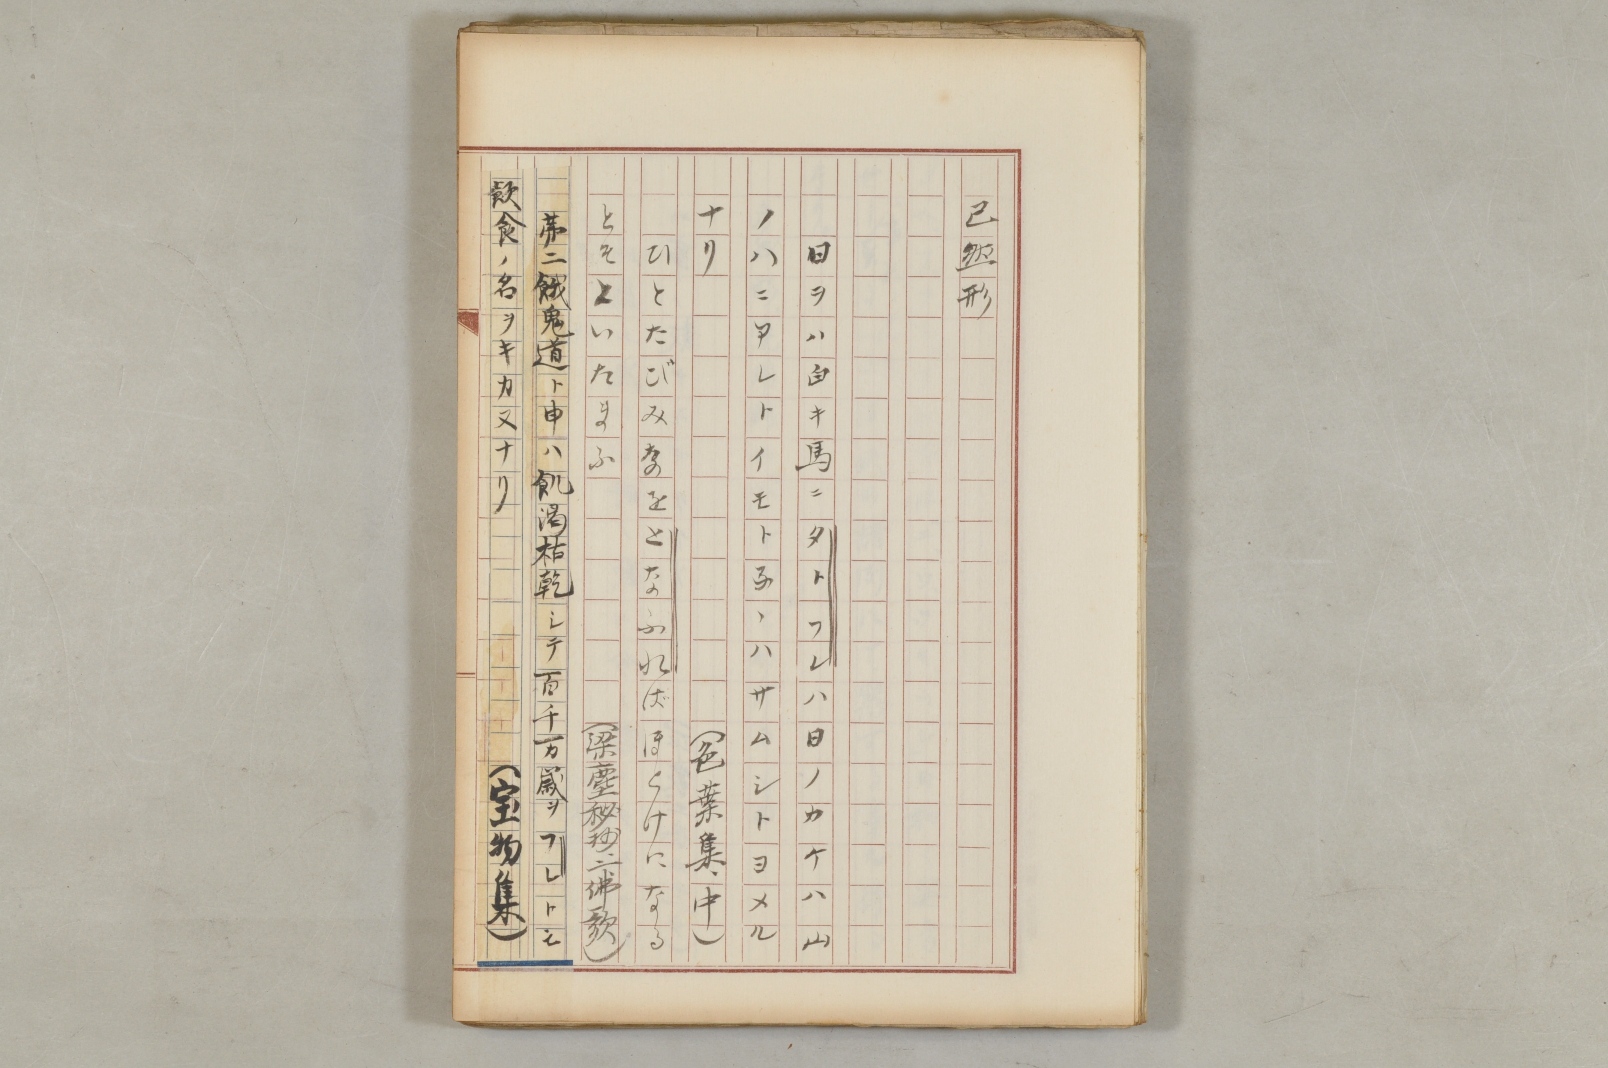 已然形
日ヲハ白キ馬ニタトフレハ日ノカケハ山
ノハニアレトイモトネヽハサムシトヨメル
ナリ
(色葉集、中)
ひとたびみなをとなふればほとけになる
とそといたまふ
(梁塵秘抄、二佛歌)
第二餓鬼道ト申ハ飢渇枯乾シテ百千万歳ヲフレトモ
飲食ノ名ヲキカヌナリ
(宝物集)